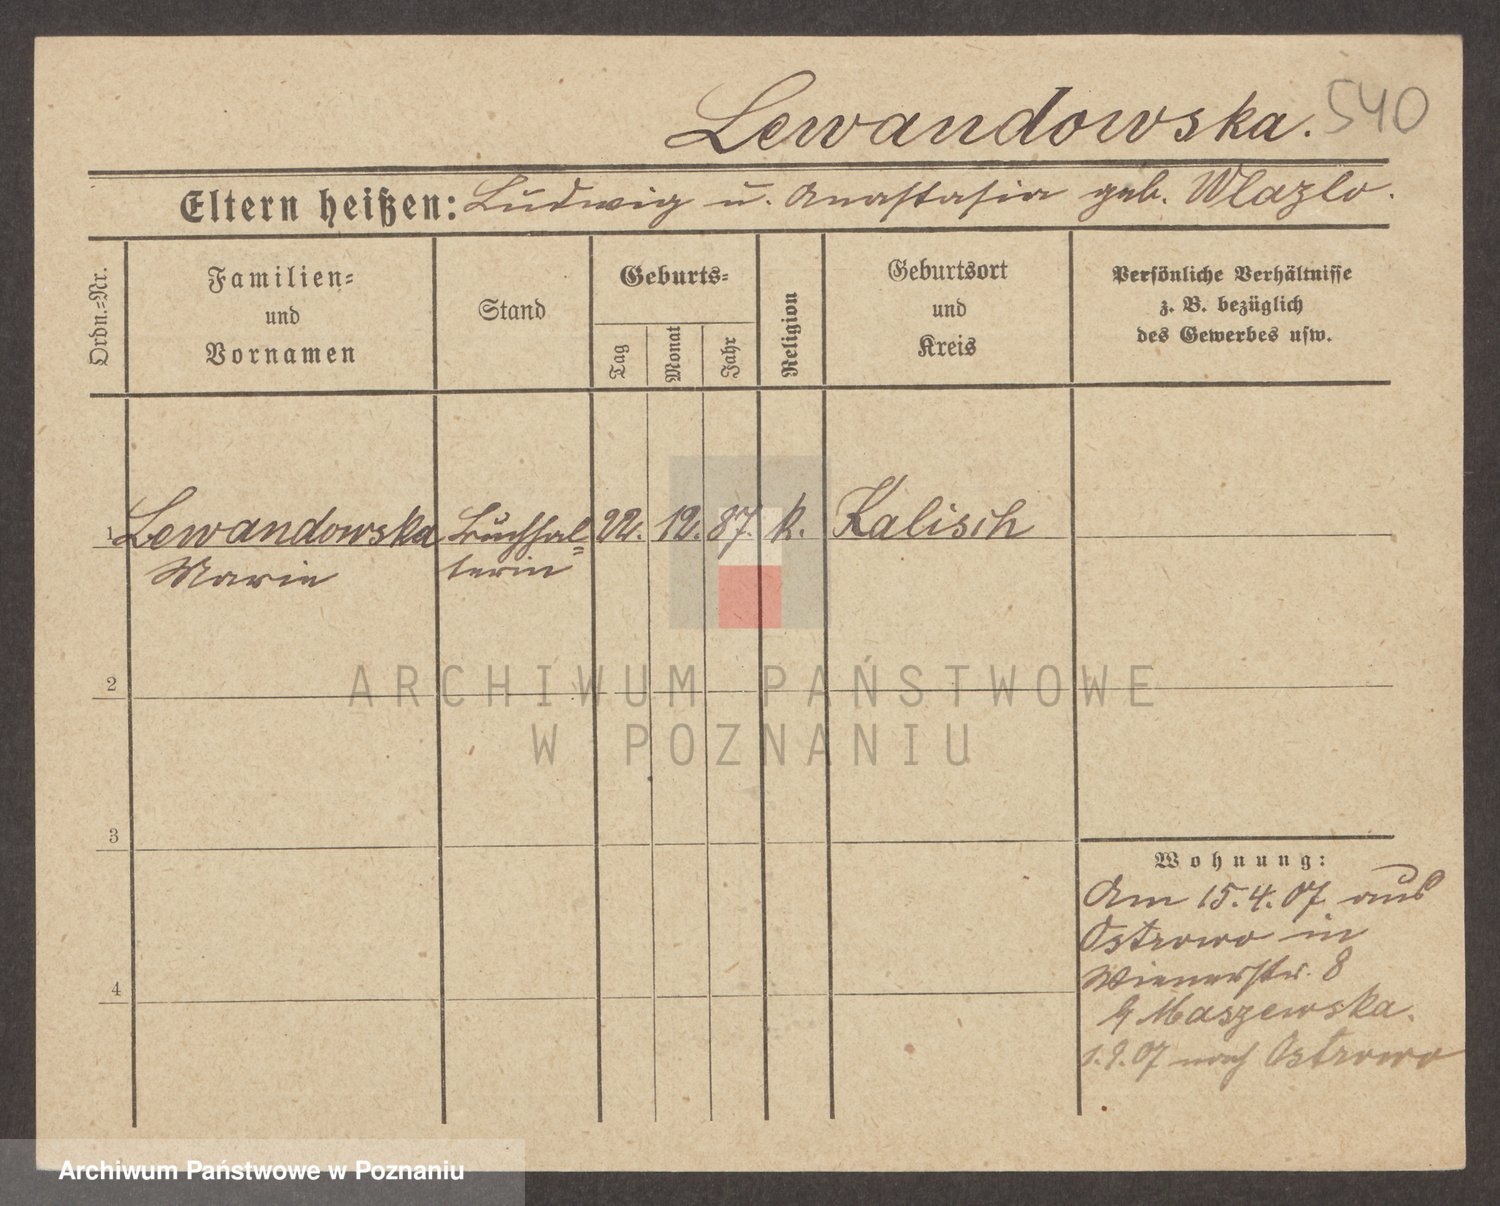 Lewandowska. 540
Eltern heißen: Ludwig u. Anastasia geb. Wlazlo.
Ordn.=Nr.
Familien=
und
Vornamen
Stand
Geburts=
Tag
Monat
Jahr
Religion
Geburtsort
und
Kreis
Persönliche Verhältnisse
z. B. bezüglich
des Gewerbes usw.
1 Lewandowska Buchhal= 22. 12. 87. k. Kalisch
Marie terin
2
3
4
Wohnung:
Am 15.4.07. aus
Ostrowo in
Wienerstr. 8
Maszewska.
1.9.07 nach Ostrowo
ARCHIWUM PAŃSTWOWE
W POZNANIU
Archiwum Państwowe w Poznaniu